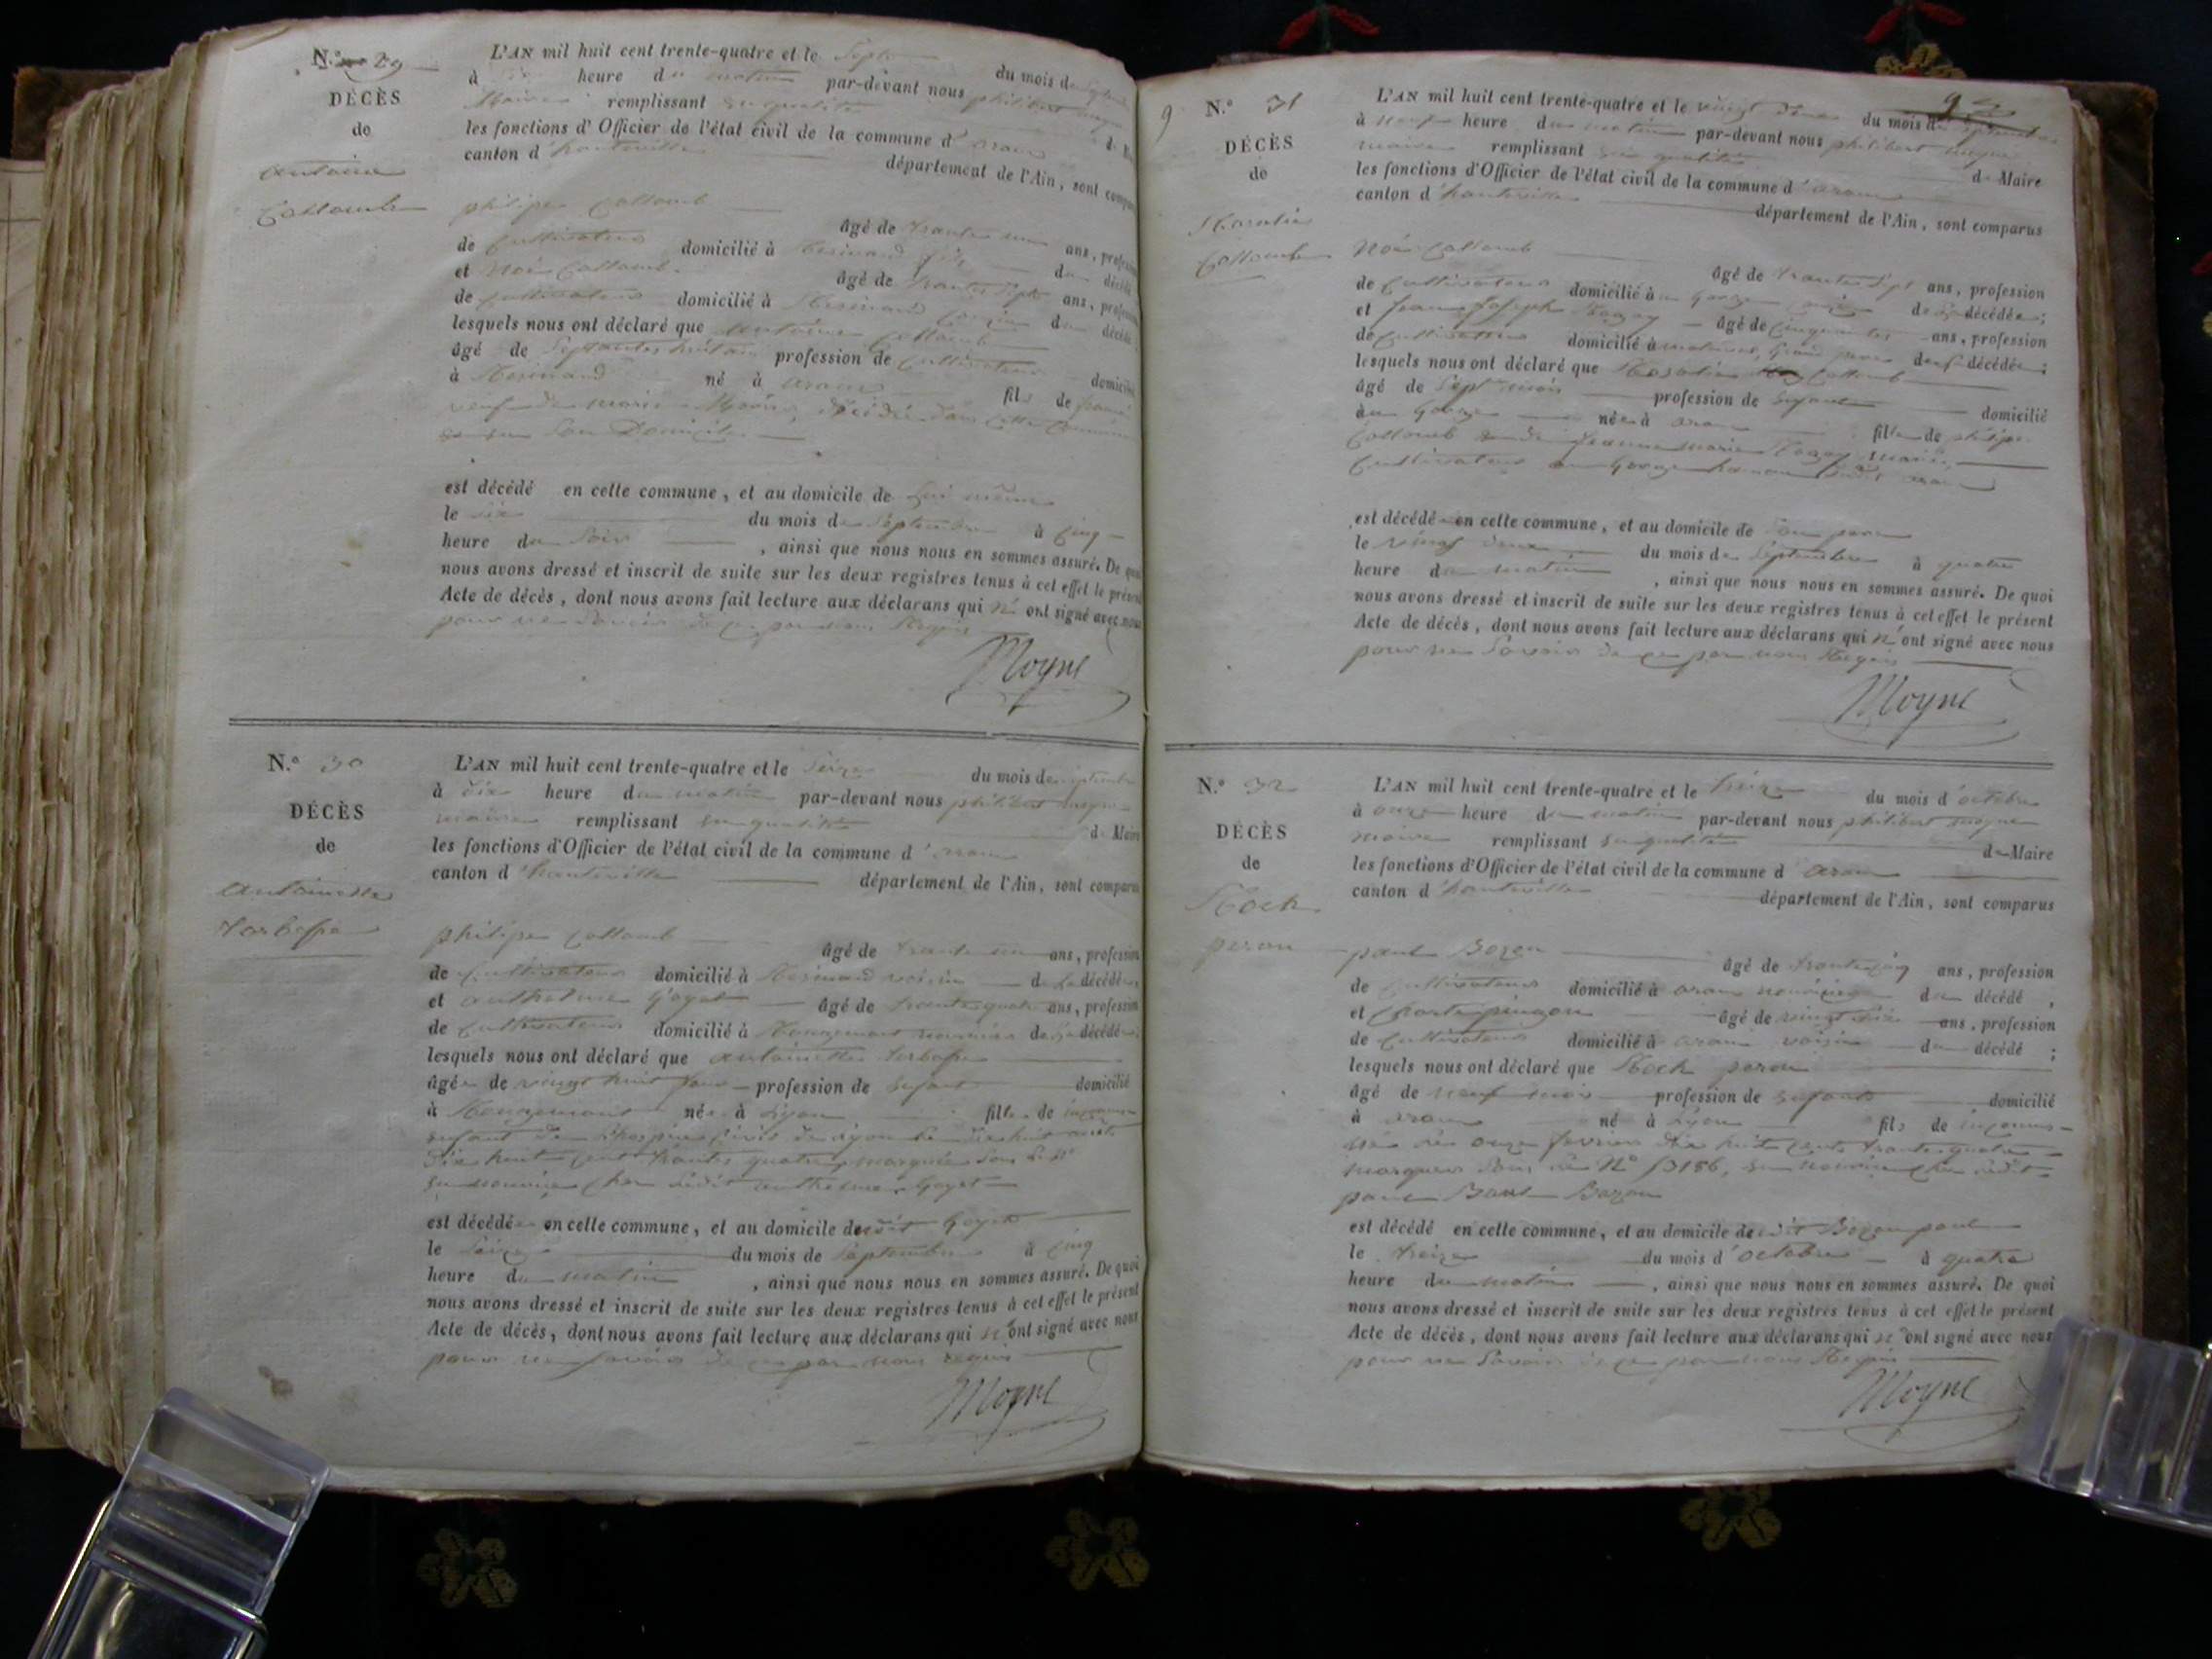 N.° 29
DÉCÈS
de
antoine
Collomb
L'AN mil huit cent trente-quatre et le Sept du mois de
à heure du matin par-devant nous philibert
Maire remplissant
les fonctions d'Officier de l'état civil de la commune d'aran
canton d'hauteville département de l'Ain, sont
philipe Collomb
âgé de trante ans,
de Cultivateur domicilié à fils du
et Noé Collomb âgé de trante Sept ans,
de Cultivateur domicilié à du
lesquels nous ont déclaré que antoine Collomb
âgé de Septante huit ans profession de Cultivateur
à né à aran fils de
veuf de marie décédé dans cette Commune
son Domicile
est décédé en cette commune, et au domicile de lui même
le six du mois de Septembre à Cinq
heure du Soir, ainsi que nous nous en sommes assuré. De quoi
nous avons dressé et inscrit de suite sur les deux registres tenus à cet effet le présent
Acte de décès, dont nous avons fait lecture aux déclarans qui n' ont signé avec nous
pour ne Savoir de ce par nous Requis
Moyne
N.° 30
DÉCÈS
de
antoinette
L'AN mil huit cent trente-quatre et le Seize du mois de septembre
à dix heure du matin par-devant nous philibert moyne
maire remplissant sa qualité de Maire
les fonctions d'Officier de l'état civil de la commune d'aran
canton d'hauteville département de l'Ain, sont comparus
philipe Collomb
âgé de trante ans, profession
de Cultivateur domicilié à voisin de la décédée
et anthelme Goyet âgé de trante quatre ans, profession
de Cultivateur domicilié à de la décédée
lesquels nous ont déclaré que antoinette
âgée de vingt huit jour profession de enfant domicilié
à née à Lyon fille de
enfant de l'hospice Civil de Lyon le dix huit août
Dix huit cent trante quatre marquée Sous
en nourrice chez Ledit anthelme Goyet
est décédée en cette commune, et au domicile dudit Goyet
le Seize du mois de Septembre à Cinq
heure du matin, ainsi que nous nous en sommes assuré. De quoi
nous avons dressé et inscrit de suite sur les deux registres tenus à cet effet le présent
Acte de décès, dont nous avons fait lecture aux déclarans qui n'ont signé avec nous
pour ne Savoir de ce par nous requis
Moyne
9
N.° 31
DÉCÈS
de
Collomb
L'AN mil huit cent trente-quatre et le vingt deux du mois de septembre
à neuf heure du matin par-devant nous philibert moyne
maire remplissant sa qualité de Maire
les fonctions d'Officier de l'état civil de la commune d'aran
canton d'hauteville département de l'Ain, sont comparus
Noé Collomb
âgé de trante Sept ans, profession
de Cultivateur domicilié à de la décédée;
et jean joseph âgé de Cinquante ans, profession
de Cultivateur domicilié à Grand père de la décédée;
lesquels nous ont déclaré que Collomb
âgé de Sept mois profession de enfant domicilié
née à aran fille de philipe
Collomb de jeanne marie mariés
Cultivateur hameau dudit aran
est décédé en cette commune, et au domicile de Son père
le vingt deux du mois de Septembre à quatre
heure du matin, ainsi que nous nous en sommes assuré. De quoi
nous avons dressé et inscrit de suite sur les deux registres tenus à cet effet le présent
Acte de décès, dont nous avons fait lecture aux déclarans qui n'ont signé avec nous
pour ne Savoir de ce par nous Requis
Moyne
N.° 32
DÉCÈS
de
Rock
peron
L'AN mil huit cent trente-quatre et le treize du mois d'octobre
à onze heure du matin par-devant nous philibert moyne
maire remplissant sa qualité de Maire
les fonctions d'Officier de l'état civil de la commune d'aran
canton d'hauteville département de l'Ain, sont comparus
paul Bozon
âgé de trante cinq ans, profession
de Cultivateur domicilié à aran nourricier du décédé,
et âgé de vingt Six ans, profession
de Cultivateur domicilié à aran voisin du décédé;
lesquels nous ont déclaré que Rock peron
âgé de neuf mois profession de enfant domicilié
à aran né à Lyon fils de inconnus
né le onze fevrier dix huit cent trante quatre
marqué Sous le N° 13156, en nourrice chez ledit
paul Bozon
est décédé en cette commune, et au domicile dudit Bozon paul
le treize du mois d'octobre à quatre
heure du matin, ainsi que nous nous en sommes assuré. De quoi
nous avons dressé et inscrit de suite sur les deux registres tenus à cet effet le présent
Acte de décès, dont nous avons fait lecture aux déclarans qui n'ont signé avec nous
pour ne Savoir de ce par nous Requis
Moyne